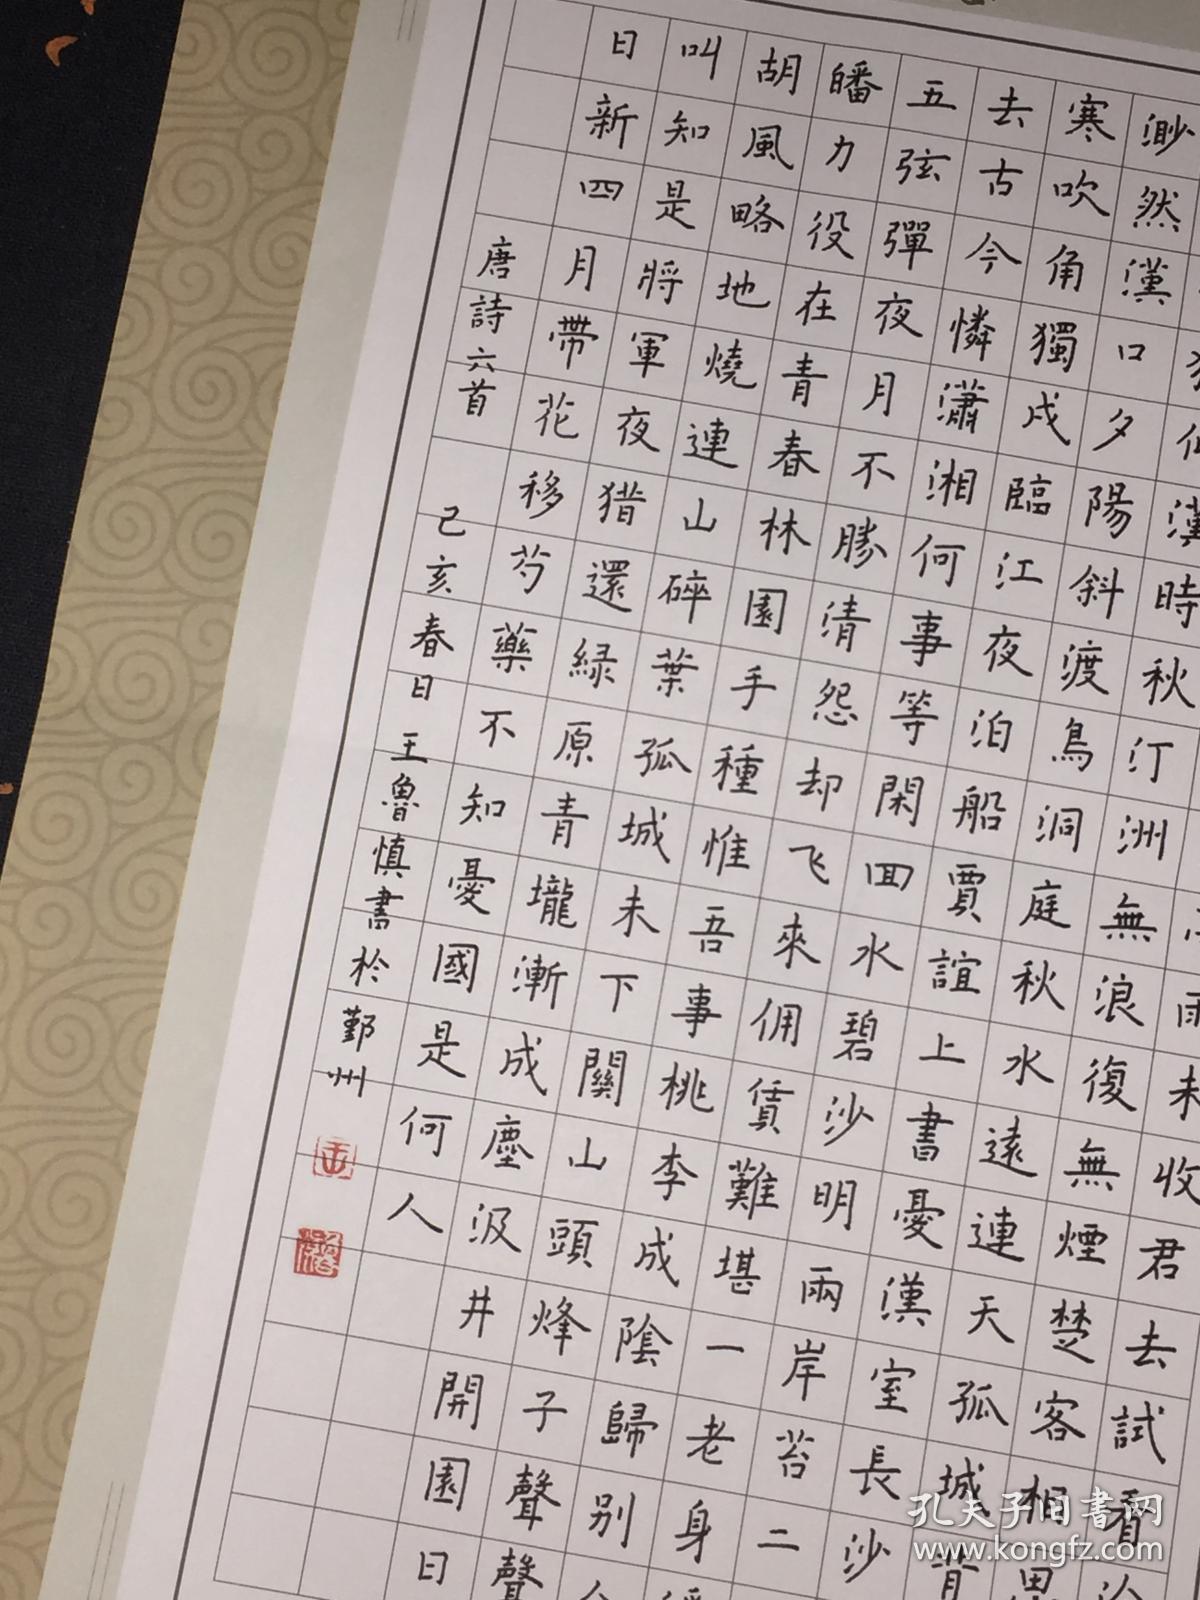 雨未收君去試看汾
時秋汀洲無浪復無煙楚客相思
渺然漢口夕陽斜渡鳥洞庭秋水遠連天孤城背
寒吹角獨戍臨江夜泊船賈誼上書憂漢室長沙
去古今憐瀟湘何事等閑回水碧沙明兩岸苔二
五弦彈夜月不勝清怨却飞來佣賃難堪一老身
皤力役在青春林園手種惟吾事桃李成陰歸別人
胡風略地燒連山碎葉孤城未下關山頭烽子聲聲
叫知是將軍夜猎還綠原青壠漸成塵汲井開園日
日新四月帶花移芍藥不知憂國是何人
唐詩六首 己亥春日王魯慎書於鄞州
孔夫子旧書网
www.kongfz.com